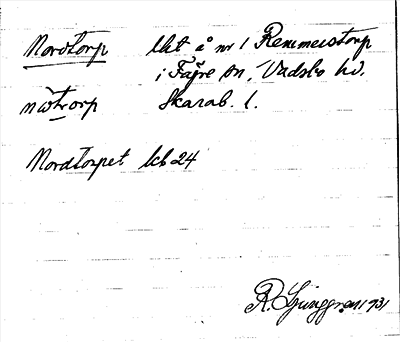 Nordtorp lht å nr 1 Remmerstorp
i Fägre sn, Vadsbo hd.
Skarab. l.
Nordtorpet lcb 24
R. Ljunggren 1931